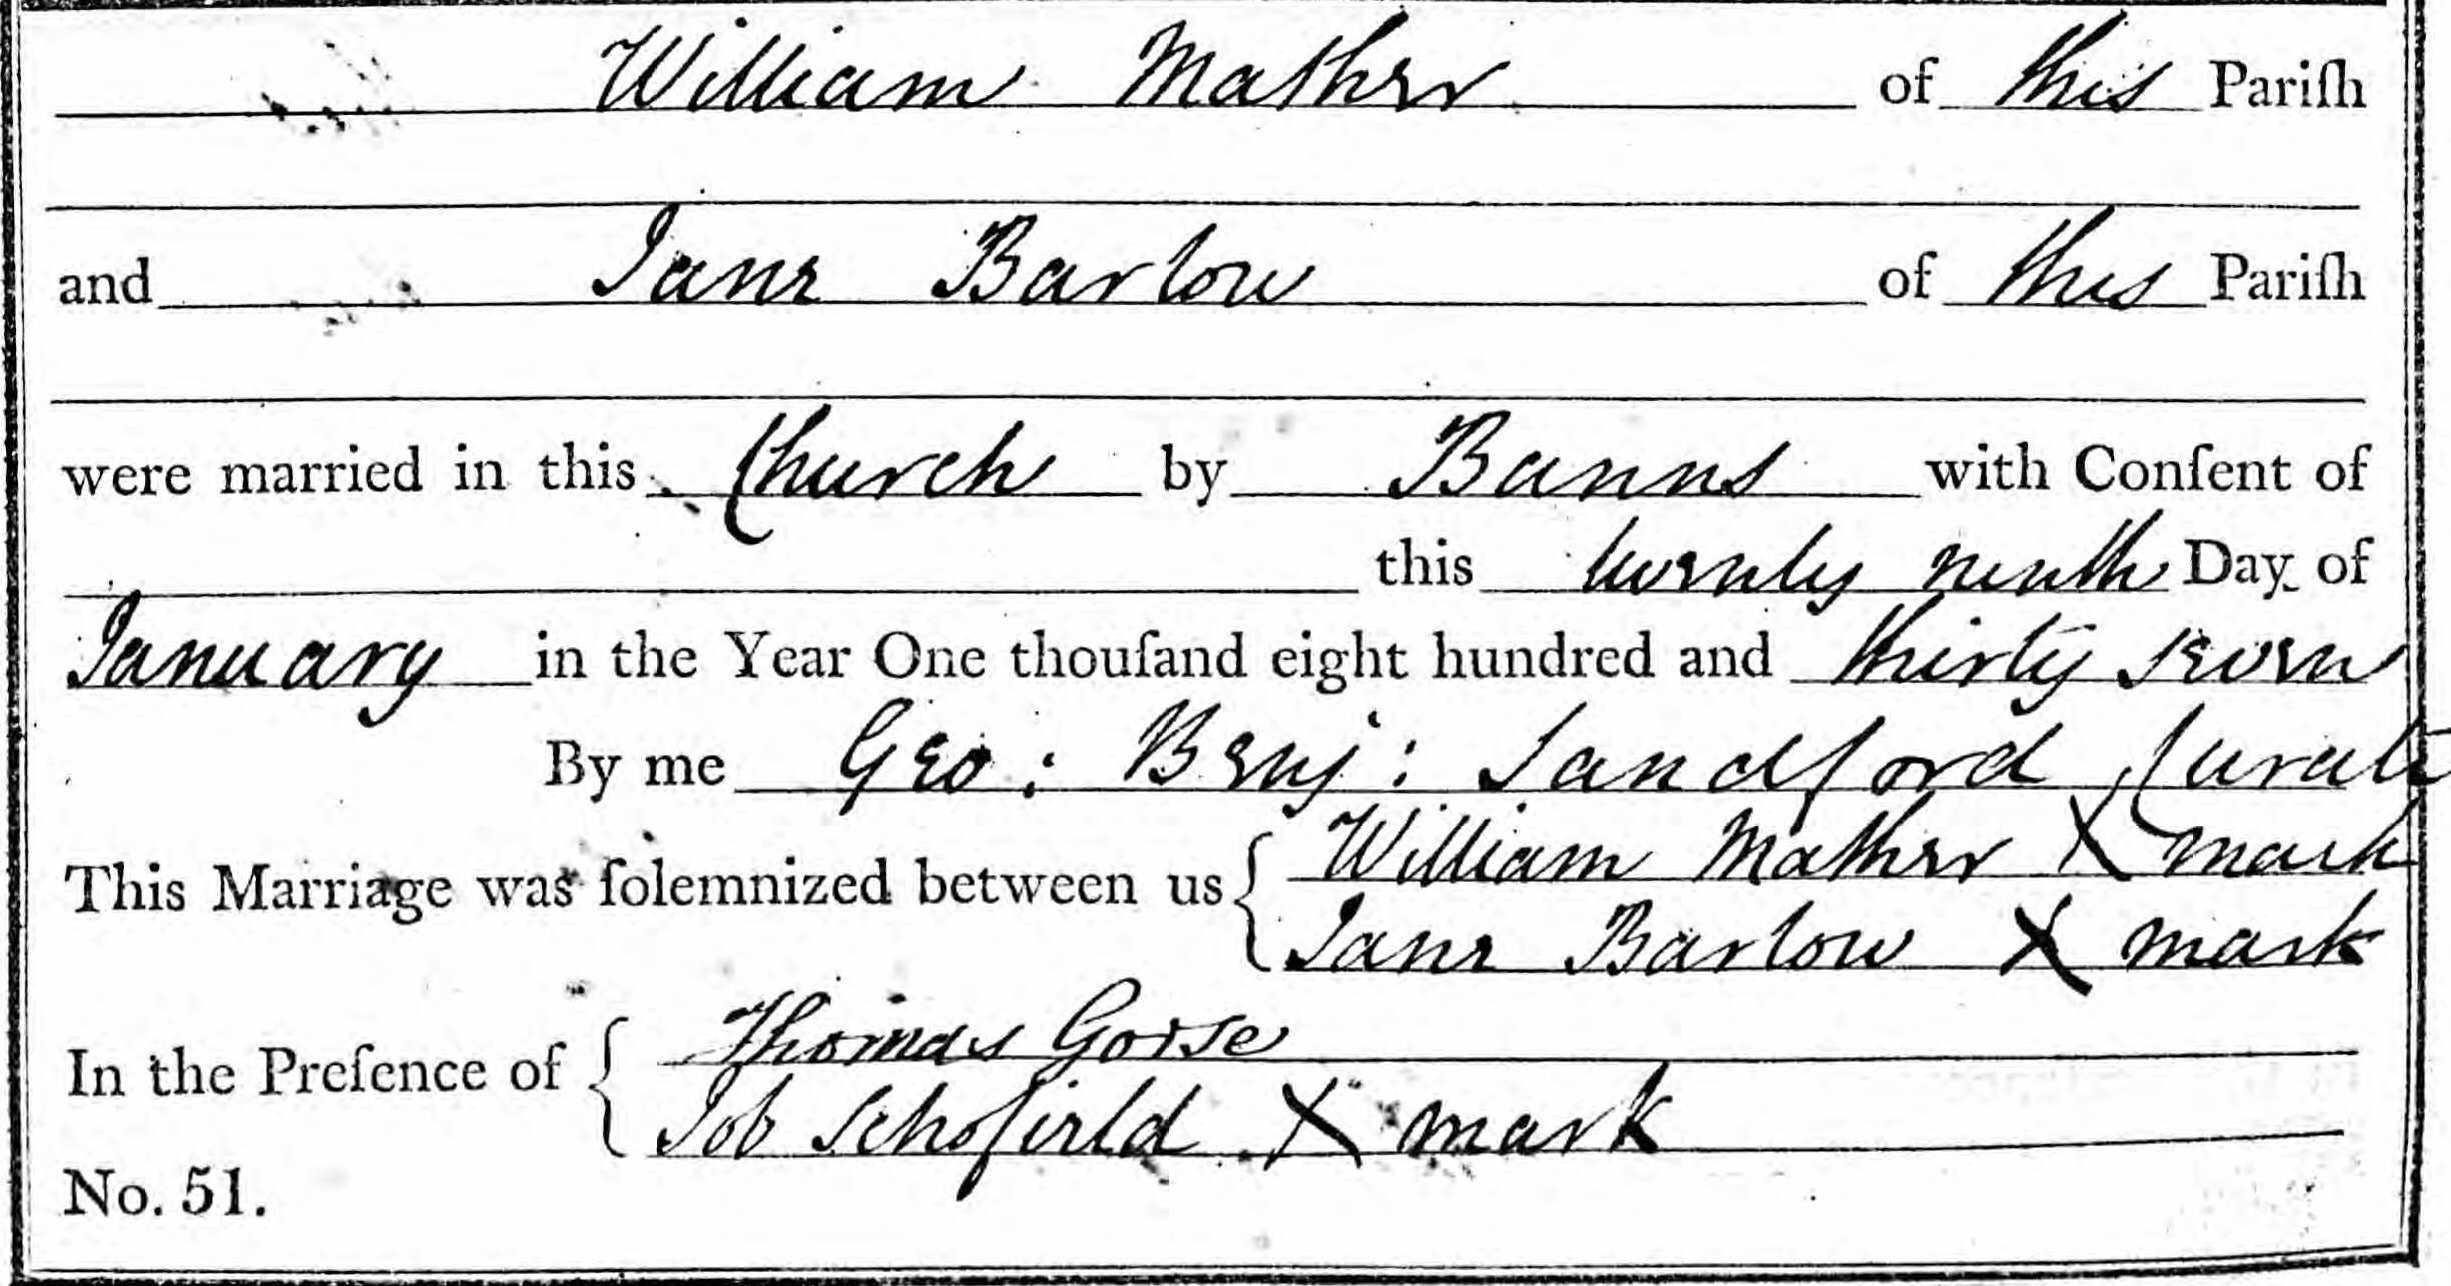 William Mather of this Pariſh
and Jane Barlow of this Pariſh
were married in this Church by Banns with Conſent of
this twenty ninth Day of
January in the Year One thouſand eight hundred and thirty seven
By me Geo: Benj: Sandford Curate
This Marriage was ſolemnized between us { William Mather X mark
Jane Barlow X mark
In the Preſence of { Thomas Gorse
Job Schofield X mark
No. 51.